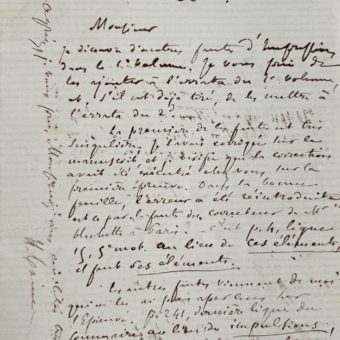 Monsieur
je découvre d'autres fautes d'impression
dans le 1er volume. Je vous prie de
les ajouter à l'errata du 1er volume,
et s'il est déjà tiré, de les mettre à
l'errata du 2d.
La première de ces fautes est très
singulière. Je l'avais corrigée sur le
manuscrit, et je vérifie que la correction
avait été exécutée chez vous, sur la
première épreuve. Dans la bonne
feuille, l'erreur a été réintroduite
est ce par la faute du correcteur de Mr
à Paris? - C'est p. 4, ligne
15, 5e mot. au lieu de ces éléments,
il faut ses éléments.
Les autres fautes viennent de moi
qui ne les ai pas aperçues sur
l'épreuve. p. 241, dernière ligne du
sommaire au lieu de impulsions,
Agréez, je vous prie, Monsieur,
H. Taine